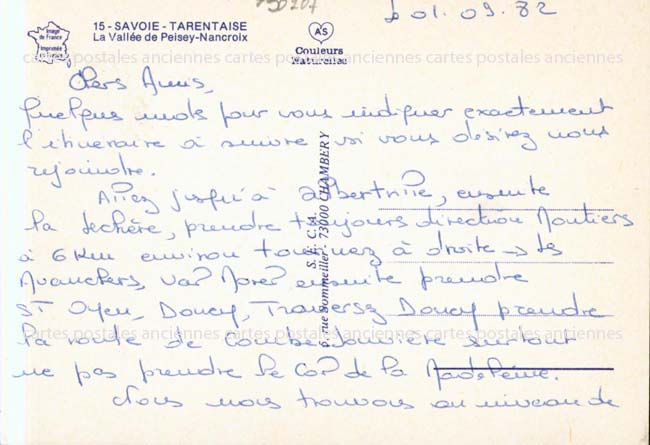 150207
le 01.09.82
15 - SAVOIE - TARENTAISE
La Vallée de Peisey-Nancroix
Image de France
Imprimée
AS
Couleurs
Naturelles
cartes postales anciennes cartes postales anciennes cartes postales anciennes
Chers Amis,
Quelques mots pour vous indiquer exactement
l'itinéraire à suivre si vous désirez nous
rejoindre.
Allez jusqu'à Albertville, ensuite
la Lechère, prendre toujours direction Moutiers
à 6 Km environ tournez à droite → les
Avanchers, Val Morel ensuite prendre
ST Oyen, Doucy, Traversez Doucy prendre
la route de Combelouvière surtout
ne pas prendre le Col de la Madeleine.
Nous nous trouvons au niveau de
S.E.C.A.
rue Sommeiller - 73000 CHAMBÉRY
cartes postales anciennes cartes postales anciennes cartes postales anciennes